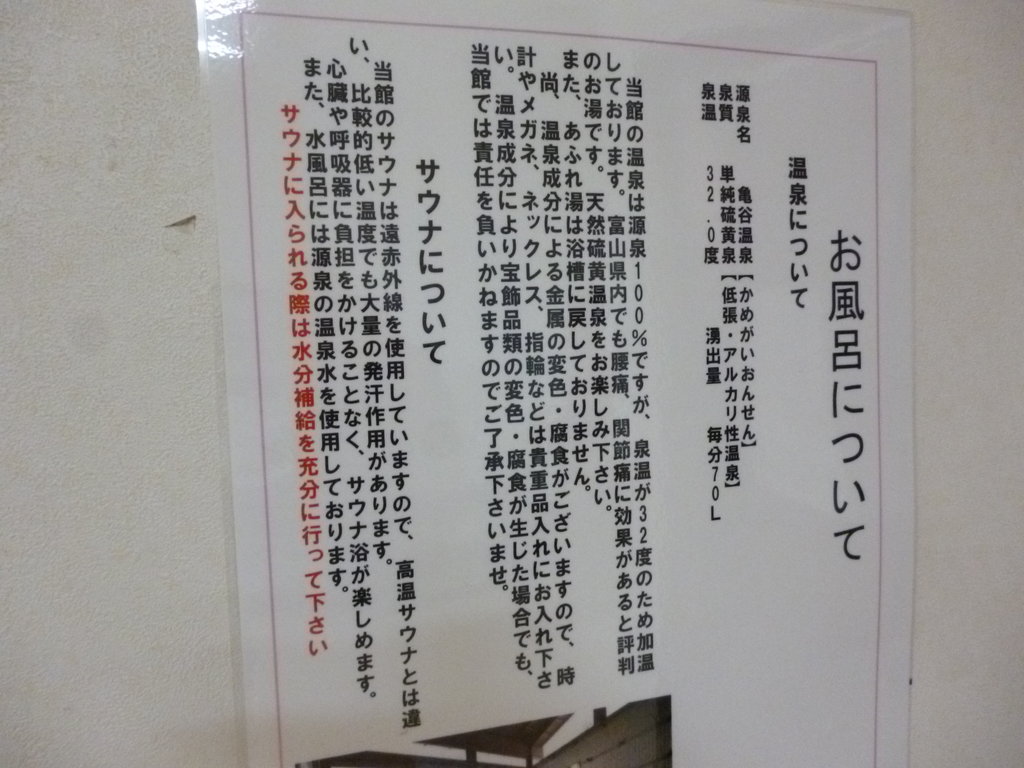 お風呂について
温泉について
源泉名　亀谷温泉【かめがいおんせん】
泉質　単純硫黄泉【低張・アルカリ性温泉】
泉温　３２．０度　湧出量　毎分７０Ｌ
当館の温泉は源泉１００％ですが、泉温が３２度のため加温
しております。富山県内でも腰痛、関節痛に効果があると評判
のお湯です。天然硫黄温泉をお楽しみ下さい。
また、あふれ湯は浴槽に戻しておりません。
尚、温泉成分による金属の変色・腐食がございますので、時
計やメガネ、ネックレス、指輪などは貴重品入れにお入れ下さ
い。温泉成分により宝飾品類の変色・腐食が生じた場合でも、
当館では責任を負いかねますのでご了承下さいませ。
サウナについて
当館のサウナは遠赤外線を使用していますので、高温サウナとは違
い、比較的低い温度でも大量の発汗作用があります。
心臓や呼吸器に負担をかけることなく、サウナ浴が楽しめます。
また、水風呂には源泉の温泉水を使用しております。
サウナに入られる際は水分補給を充分に行って下さい